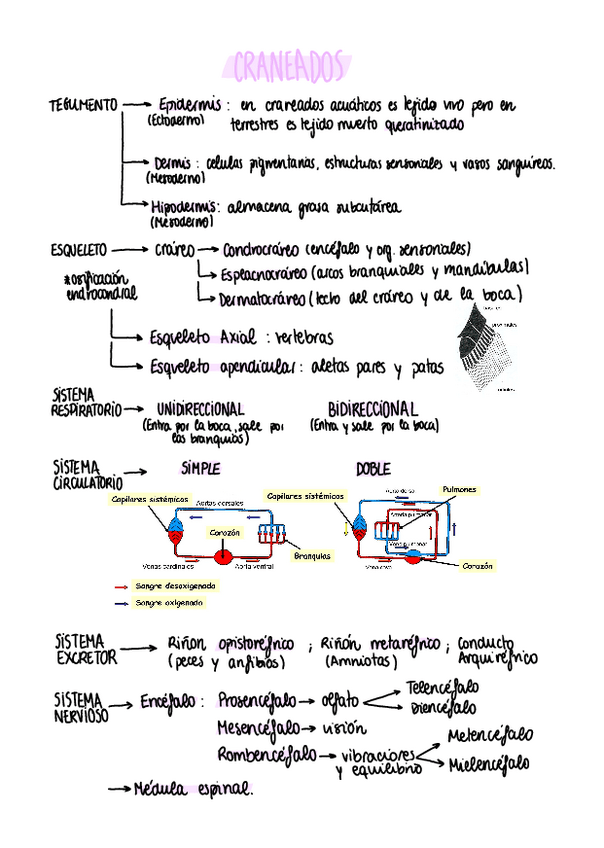 CRANEADOS
TEGUMENTO → Epidermis: en craneados acuáticos es tejido vivo pero en
(Ectodermo) terrestres es tejido muerto queratinizado
→ Dermis: celulas pigmentarias, estructuras sensoriales y vasos sanguíneos.
(Mesodermo)
→ Hipodermis: almacena grasa subcutánea
(Mesodermo)
ESQUELETO → cráneo → Condrocráneo (encéfalo y org. sensoriales)
*osificación → Esplacnocráneo (arcos branquiales y mandíbulas)
endrocondral → Dermatocráneo (techo del cráneo y de la boca)
→ Esqueleto Axial : vertebras
→ Esqueleto apendicular: aletas pares y patas
proximales
radiales
SISTEMA
RESPIRATORIO → UNIDIRECCIONAL BIDIRECCIONAL
(Entra por la boca, sale por (Entra y sale por la boca)
las branquias)
SISTEMA → SIMPLE DOBLE
CIRCULATORIO
Capilares sistémicos Aortas dorsales Capilares sistémicos Aorta dorsal Pulmones
Arteria pulmonar
Corazón
Branquias
Vena pulmonar
Venas cardinales Aorta ventral Vena cava Corazón
→ Sangre desoxigenada
→ Sangre oxigenada
SISTEMA → Riñon opistonéfrico ; Riñón metanéfrico ; Conducto
EXCRETOR (peces y anfibios) (Amniotas) Arquinéfrico
SISTEMA → Encéfalo : Prosencéfalo → olfato → Telencéfalo
NERVIOSO → Diencéfalo
Mesencéfalo → visión
Rombencéfalo → vibraciones → Metencéfalo
y equilibrio → Mielencéfalo
→ Médula espinal.